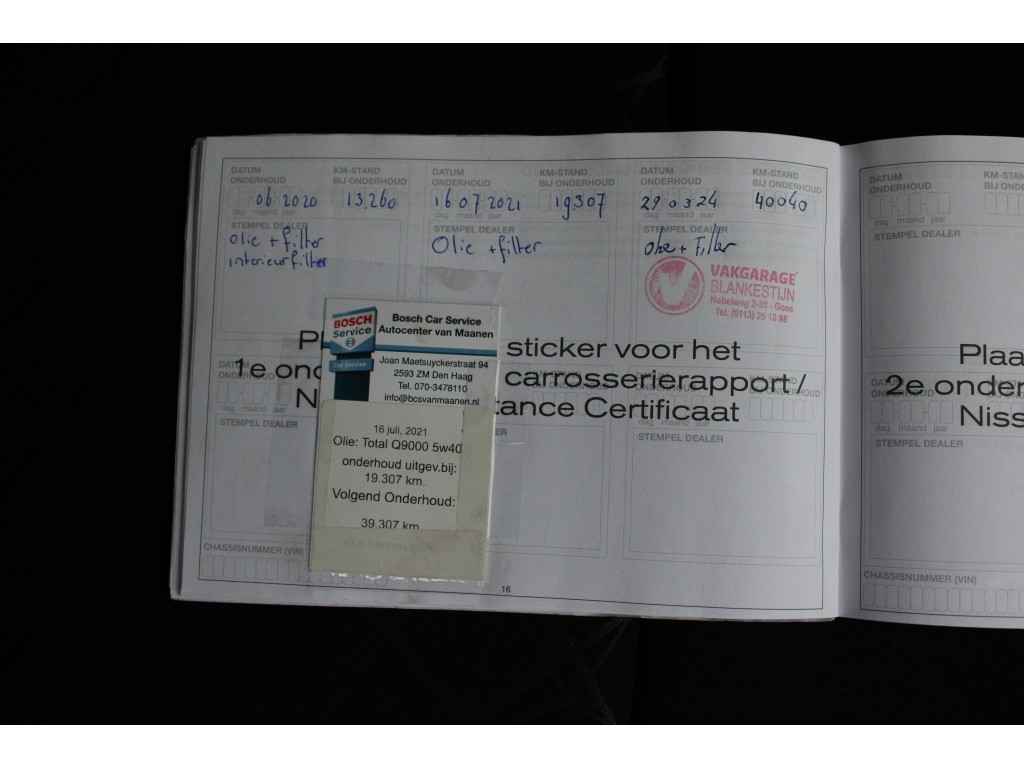 DATUM ONDERHOUD
KM-STAND BIJ ONDERHOUD
DATUM ONDERHOUD
KM-STAND BIJ ONDERHOUD
DATUM ONDERHOUD
KM-STAND BIJ ONDERHOUD
06 2020
13,260
16 07 2021
19,307
29 03 24
40040
dag maand jaar
dag maand jaar
dag maand jaar
STEMPEL DEALER
STEMPEL DEALER
STEMPEL DEALER
olie + filter
interieurfilter
Olie + filter
Olie + Filter
VAKGARAGE
BLANKESTIJN
Goes
BOSCH
Service
Bosch Car Service
Autocenter van Maanen
Joan Maetsuyckerstraat 94
2593 ZM Den Haag
Tel. 070-3478110
info@bcsvanmaanen.nl
16 juli, 2021
Olie: Total Q9000 5w40
onderhoud uitgev.bij:
19.307 km.
Volgend Onderhoud:
39.307 km
sticker voor het
1e ond
carrosserierapport /
N
tance Certificaat
DATUM ONDERHOUD
STEMPEL DEALER
STEMPEL DEALER
CHASSISNUMMER (VIN)
16
DATUM ONDERHOUD
KM-ST
BIJ ON
dag maand jaar
STEMPEL DEALER
Plaa
2e onder
Niss
dag maand jaar
STEMPEL DEALER
CHASSISNUMMER (VIN)